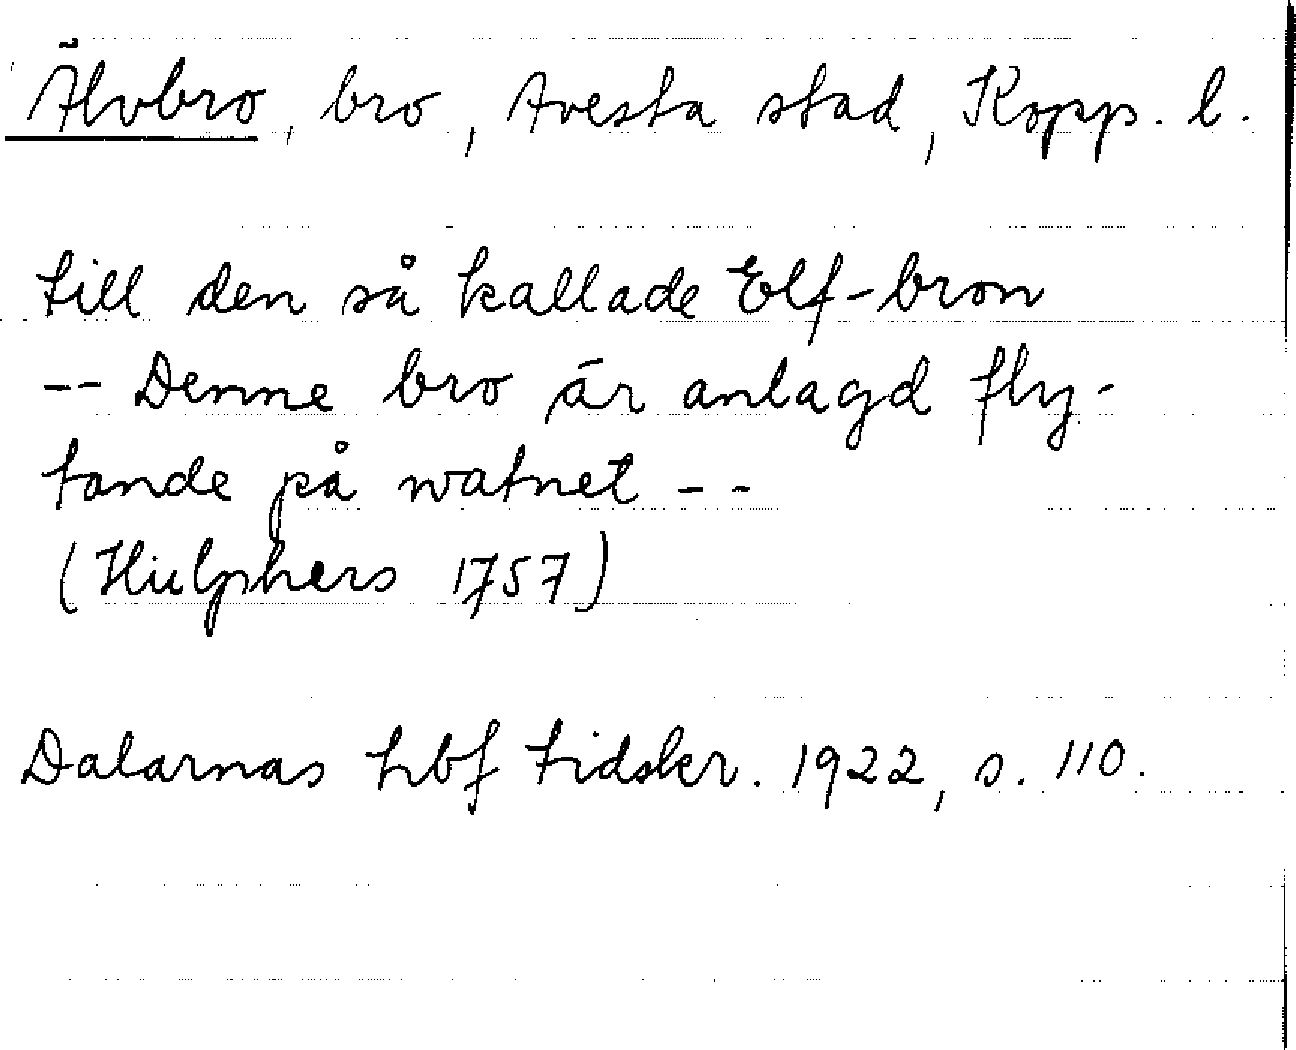 Älvbro, bro, Avesta stad, Kopp. l.
till den så kallade Elf-bron
-- Denne bro är anlagd fly-
tande på watnet --
(Hülphers 1757)
Dalarnas hbf tidskr. 1922, s. 110.